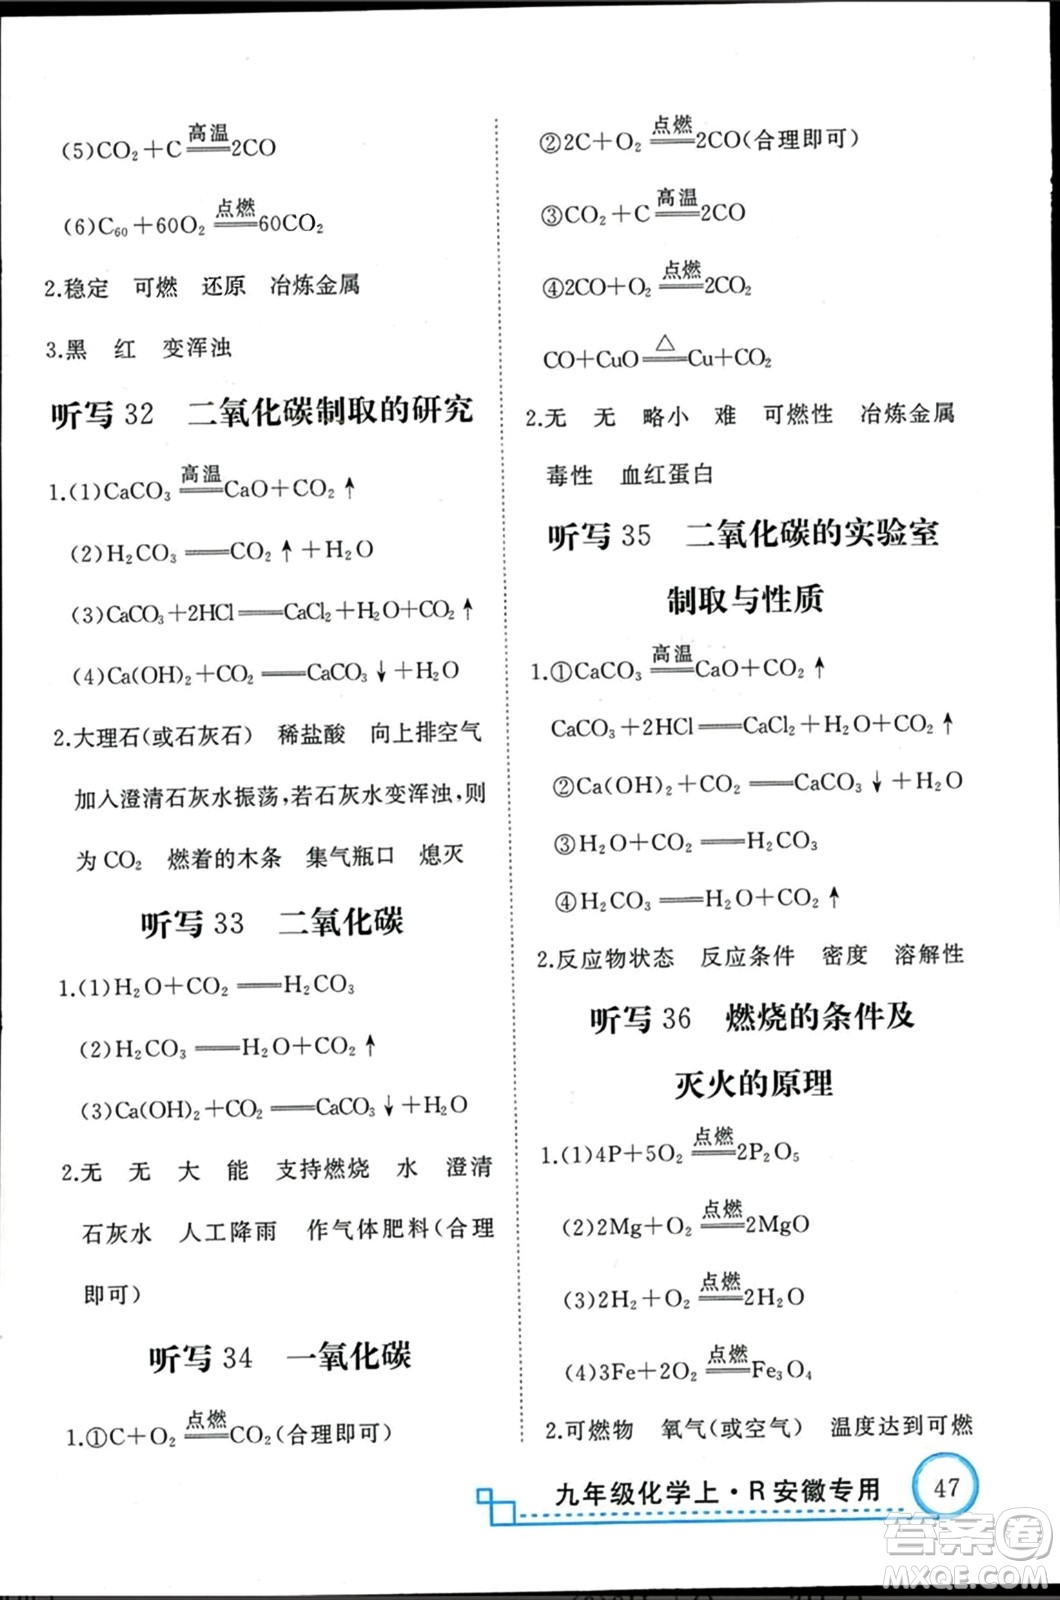 (5)CO₂+C 高温 2CO
(6)C₆₀+60O₂ 点燃 60CO₂
2.稳定 可燃 还原 冶炼金属
3.黑 红 变浑浊
听写 32 二氧化碳制取的研究
1.(1)CaCO₃ 高温 CaO+CO₂↑
(2)H₂CO₃══CO₂↑+H₂O
(3)CaCO₃+2HCl══CaCl₂+H₂O+CO₂↑
(4)Ca(OH)₂+CO₂══CaCO₃↓+H₂O
2.大理石(或石灰石) 稀盐酸 向上排空气
加入澄清石灰水振荡,若石灰水变浑浊,则
为 CO₂ 燃着的木条 集气瓶口 熄灭
听写 33 二氧化碳
1.(1)H₂O+CO₂══H₂CO₃
(2)H₂CO₃══H₂O+CO₂↑
(3)Ca(OH)₂+CO₂══CaCO₃↓+H₂O
2.无 无 大 能 支持燃烧 水 澄清
石灰水 人工降雨 作气体肥料(合理
即可)
听写 34 一氧化碳
1.①C+O₂ 点燃 CO₂(合理即可)
②2C+O₂ 点燃 2CO(合理即可)
③CO₂+C 高温 2CO
④2CO+O₂ 点燃 2CO₂
CO+CuO △ Cu+CO₂
2.无 无 略小 难 可燃性 冶炼金属
毒性 血红蛋白
听写 35 二氧化碳的实验室
制取与性质
1.①CaCO₃ 高温 CaO+CO₂↑
CaCO₃+2HCl══CaCl₂+H₂O+CO₂↑
②Ca(OH)₂+CO₂══CaCO₃↓+H₂O
③H₂O+CO₂══H₂CO₃
④H₂CO₃══H₂O+CO₂↑
2.反应物状态 反应条件 密度 溶解性
听写 36 燃烧的条件及
灭火的原理
1.(1)4P+5O₂ 点燃 2P₂O₅
(2)2Mg+O₂ 点燃 2MgO
(3)2H₂+O₂ 点燃 2H₂O
(4)3Fe+2O₂ 点燃 Fe₃O₄
2.可燃物 氧气(或空气) 温度达到可燃
九年级化学上·R 安徽专用 47
答案卷